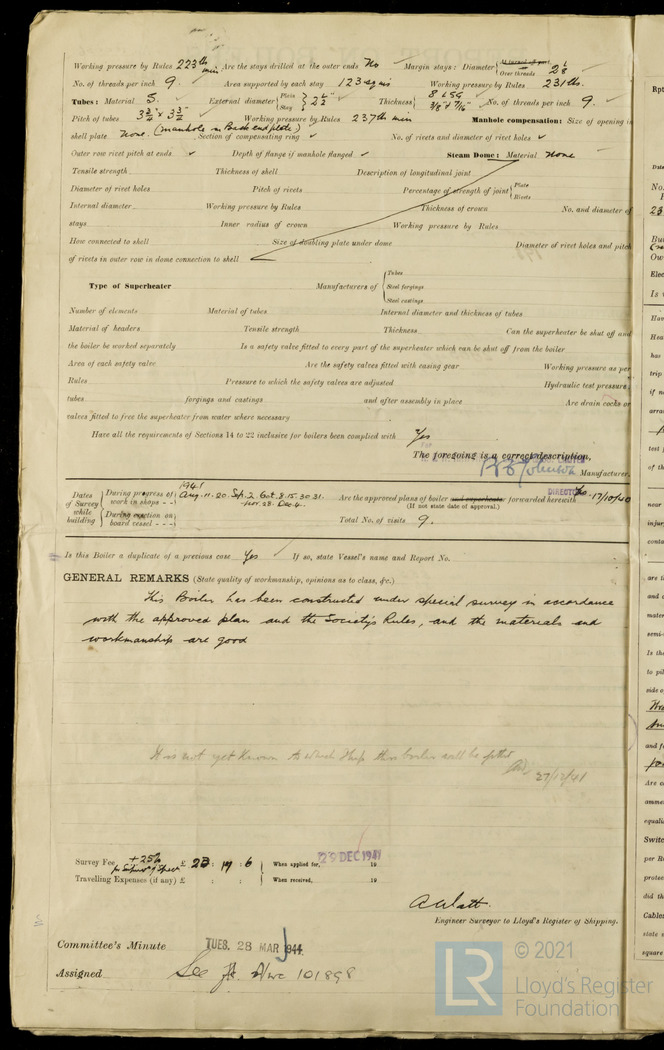 Working pressure by Rules 223 lbs min Are the stays drilled at the outer ends No Margin stays: Diameter { At turned off part, Over threads 2⅛"
No. of threads per inch 9. Area supported by each stay 123 sq ins Working pressure by Rules 231 lbs.
Tubes: Material S. External diameter { Plain Stay } 2½" Thickness { 8 LSG 3/8" & 7/16" No. of threads per inch. 9.
Pitch of tubes 3¾" × 3½" Working pressure by Rules 237 lbs min Manhole compensation: Size of opening in
shell plate None. (manhole in Back end plate) Section of compensating ring No. of rivets and diameter of rivet holes
Outer row rivet pitch at ends Depth of flange if manhole flanged Steam Dome: Material None
Tensile strength Thickness of shell Description of longitudinal joint
Diameter of rivet holes Pitch of rivets Percentage of strength of joint { Plate Rivets
Internal diameter Working pressure by Rules Thickness of crown No. and diameter of
stays Inner radius of crown Working pressure by Rules
How connected to shell Size of doubling plate under dome Diameter of rivet holes and pitch
of rivets in outer row in dome connection to shell
Type of Superheater Manufacturers of { Tubes Steel forgings Steel castings
Number of elements Material of tubes Internal diameter and thickness of tubes
Material of headers Tensile strength Thickness Can the superheater be shut off and
the boiler be worked separately Is a safety valve fitted to every part of the superheater which can be shut off from the boiler
Area of each safety valve Are the safety valves fitted with easing gear Working pressure as per
Rules Pressure to which the safety valves are adjusted Hydraulic test pressure:
tubes forgings and castings and after assembly in place Are drain cocks or
valves fitted to free the superheater from water where necessary
Have all the requirements of Sections 14 to 22 inclusive for boilers been complied with Yes
The foregoing is a correct description,
Manufacturer.
DIRECTOR
Dates of Survey while building { During progress of work in shops - - 1941 Aug. 11. 20. Sep. 2. Oct. 8. 15. 30. 31. Nov. 28. Dec. 4.
During erection on board vessel - - -
Are the approved plans of boiler and superheater forwarded herewith No - 17/10/40
(If not state date of approval.)
Total No. of visits 9.
Is this Boiler a duplicate of a previous case Yes If so, state Vessel's name and Report No.
GENERAL REMARKS (State quality of workmanship, opinions as to class, &c.)
This Boiler has been constructed under special survey in accordance
with the approved plan and the Society's Rules, and the materials and
workmanship are good
It is not yet known to which Ship this boiler will be fitted
27/12/41
Survey Fee +25% £ 23 : 19 : 6 When applied for, 29 DEC 1941 19
Travelling Expenses (if any) £ : : When received, 19
A Watt.
Engineer Surveyor to Lloyd's Register of Shipping.
Committee's Minute TUES. 28 MAR 1944
Assigned See 101898
LR © 2021
Lloyd's Register
Foundation